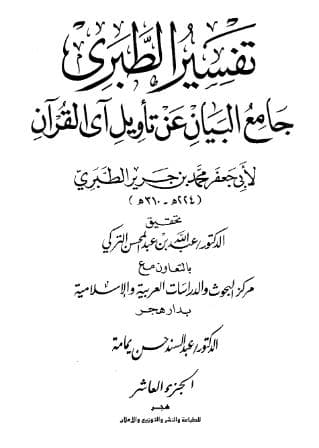 تفسير الطبري
جامع البيان عن تأويل آي القرآن
لأبي جعفر محمد بن جرير الطبري
(٢٢٤هـ - ٣١٠هـ)
تحقيق
الدكتور/ عبد الله بن عبد المحسن التركي
بالتعاون مع
مركز البحوث والدراسات العربية والإسلامية
بدار هجر
الدكتور/ عبد السند حسن يمامة
الجزء العاشر
هجر
للطباعة والنشر والتوزيع والإعلان